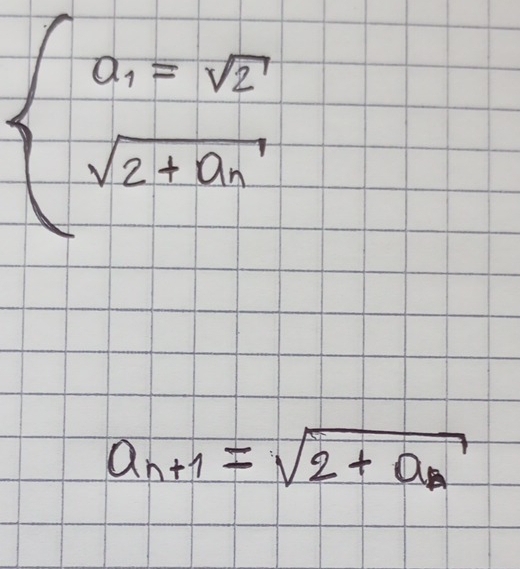 a₁ = √2
√(2 + aₙ)
aₙ₊₁ = √(2 + aₙ)